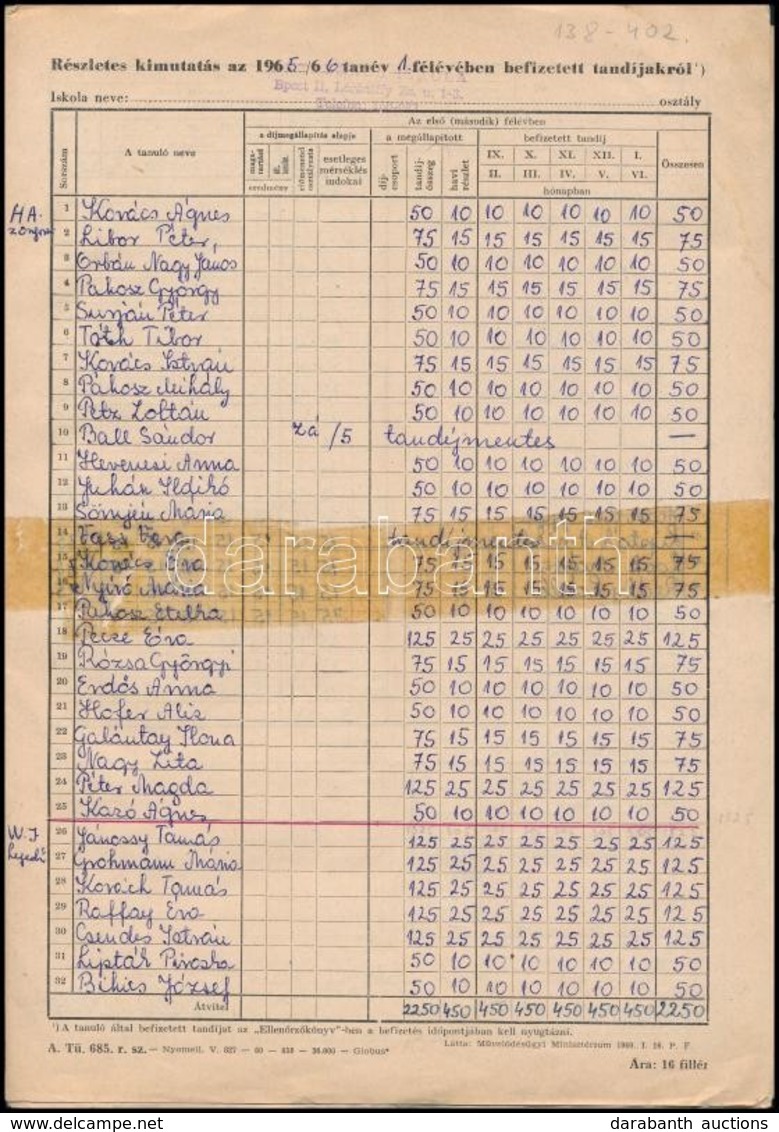 138-402.
Részletes kimutatás az 1965/66 tanév 1. félévében befizetett tandíjakról¹)
Iskola neve: osztály
Sorszám
A tanuló neve
Az első (második) félévben
a díjmegállapítás alapja
a megállapított
befizetett tandíj
Összesen
eredmény
esetleges mérséklés indokai
díjcsoport
tandíjösszeg
havi részlet
IX. X. XI. XII. I.
II. III. IV. V. VI.
hónapban
HA.
zongora
1 Kovács Ágnes 50 10 10 10 10 10 10 50
2 Libor Péter, 75 15 15 15 15 15 15 75
3 Orbán Nagy János 50 10 10 10 10 10 10 50
4 Pakosz György 75 15 15 15 15 15 15 75
5 Surján Péter 50 10 10 10 10 10 10 50
6 Tóth Tibor 50 10 10 10 10 10 10 50
7 Kovács István 75 15 15 15 15 15 15 75
8 Pákosz Mihály 50 10 10 10 10 10 10 50
9 Petz Zoltán 50 10 10 10 10 10 10 50
10 Ball Sándor zá/5 tandíjmentes —
11 Hevenesi Anna 50 10 10 10 10 10 10 50
12 Juhár Ildikó 50 10 10 10 10 10 10 50
13 Sömjén Mária 75 15 15 15 15 15 15 75
14 Vass Éva tandíjmentes —
15 Kovács Éva 75 15 15 15 15 15 15 75
16 Nyirő Mária 75 15 15 15 15 15 15 75
17 Pakosz Etelka 50 10 10 10 10 10 10 50
18 Pecze Éva 125 25 25 25 25 25 25 125
19 Rózsa Györgyi 75 15 15 15 15 15 15 75
20 Erdős Anna 50 10 10 10 10 10 10 50
21 Hofer Aliz 50 10 10 10 10 10 10 50
22 Galántay Ilona 75 15 15 15 15 15 15 75
23 Nagy Zita 75 15 15 15 15 15 15 75
24 Péter Magda 125 25 25 25 25 25 25 125
25 Kazó Ágnes 50 10 10 10 10 10 10 50
W.J
hegedű
26 Jánossy Tamás 125 25 25 25 25 25 25 125
27 Grohmann Mária 125 25 25 25 25 25 25 125
28 Kovách Tamás 125 25 25 25 25 25 25 125
29 Raffay Éva 125 25 25 25 25 25 25 125
30 Csendes István 125 25 25 25 25 25 25 125
31 Lipták Piroska 50 10 10 10 10 10 10 50
32 Bihics József 50 10 10 10 10 10 10 50
Átvitel 2250 450 450 450 450 450 450 2250
darabanth
¹) A tanuló által befizetett tandíjat az „Ellenőrzőkönyv"-ben a befizetés időpontjában kell nyugtázni.
A. Tü. 685. r. sz. — Nyomell. V. 627 — 60 — 36.000 — Globus"
Látta: Művelődésügyi Minisztérium 1960. I. 16. P. F.
Ára: 16 fillér
www.darabanth.com
darabanth auctions